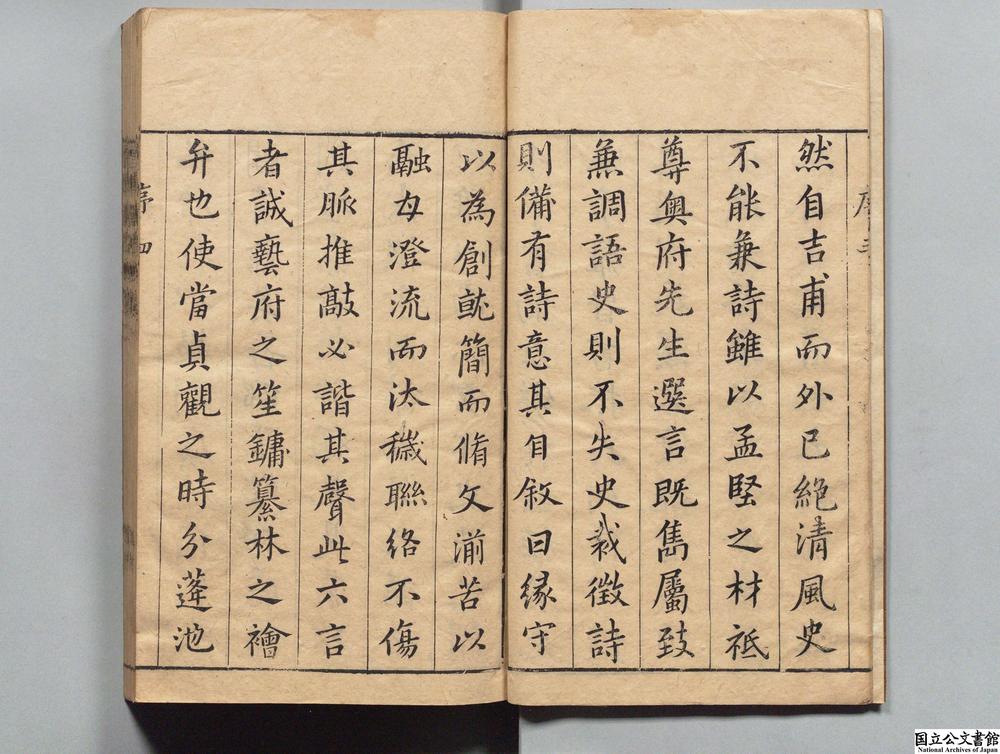 然自吉甫而外已絶清風史
不能兼詩雖以孟堅之材祗
尊奥府先生選言既雋屬致
兼調語史則不失史裁徵詩
則備有詩意其自敘曰緣守
以為創就簡而脩文湔苦以
融毋澄流而汰穢聯絡不傷
其脈推敲必諧其聲此六言
者誠藝府之笙鏞纂林之襘
弁也使當貞觀之時分蓬池
序四
国立公文書館
National Archives of Japan